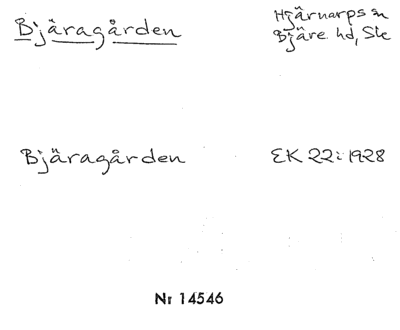 Bjäragården
Hjärnarps sn
Bjäre hd, Sk
Bjäragården
EK 22: 1928
Nr 14546